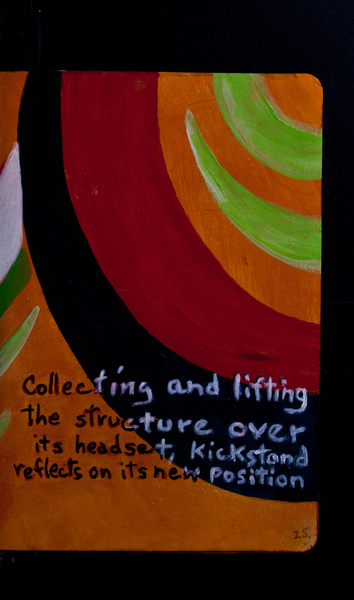 Collecting and lifting
the structure over
its headset, Kickstand
reflects on its new position
25.